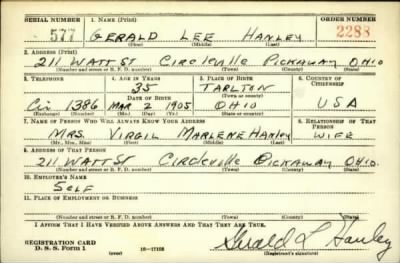 SERIAL NUMBER 1. NAME (Print) ORDER NUMBER
577 GERALD LEE HANLEY 2288
(First) (Middle) (Last)
2. ADDRESS (Print)
211 WATT ST Circleville PICKAWAY OHIO
(Number and street or R. F. D. number) (Town) (County) (State)
3. TELEPHONE 4. AGE IN YEARS 5. PLACE OF BIRTH 6. COUNTRY OF CITIZENSHIP
35 TARLTON
DATE OF BIRTH (Town or county)
Cir 1386 MAR 2 1905 OHIO USA
(Exchange) (Number) (Mo.) (Day) (Yr.) (State or country)
7. NAME OF PERSON WHO WILL ALWAYS KNOW YOUR ADDRESS 8. RELATIONSHIP OF THAT PERSON
MRS. VIRGIL MARLENE HANLEY WIFE
(Mr., Mrs., Miss) (First) (Middle) (Last)
9. ADDRESS OF THAT PERSON
211 WATT ST Circleville PICKAWAY OHIO.
(Number and street or R. F. D. number) (Town) (County) (State)
10. EMPLOYER'S NAME
SELF
11. PLACE OF EMPLOYMENT OR BUSINESS
(Number and street or R. F. D. number) (Town) (County) (State)
I AFFIRM THAT I HAVE VERIFIED ABOVE ANSWERS AND THAT THEY ARE TRUE.
REGISTRATION CARD
D. S. S. Form 1 16-17105 Gerald L Hanley
(Registrant's signature)